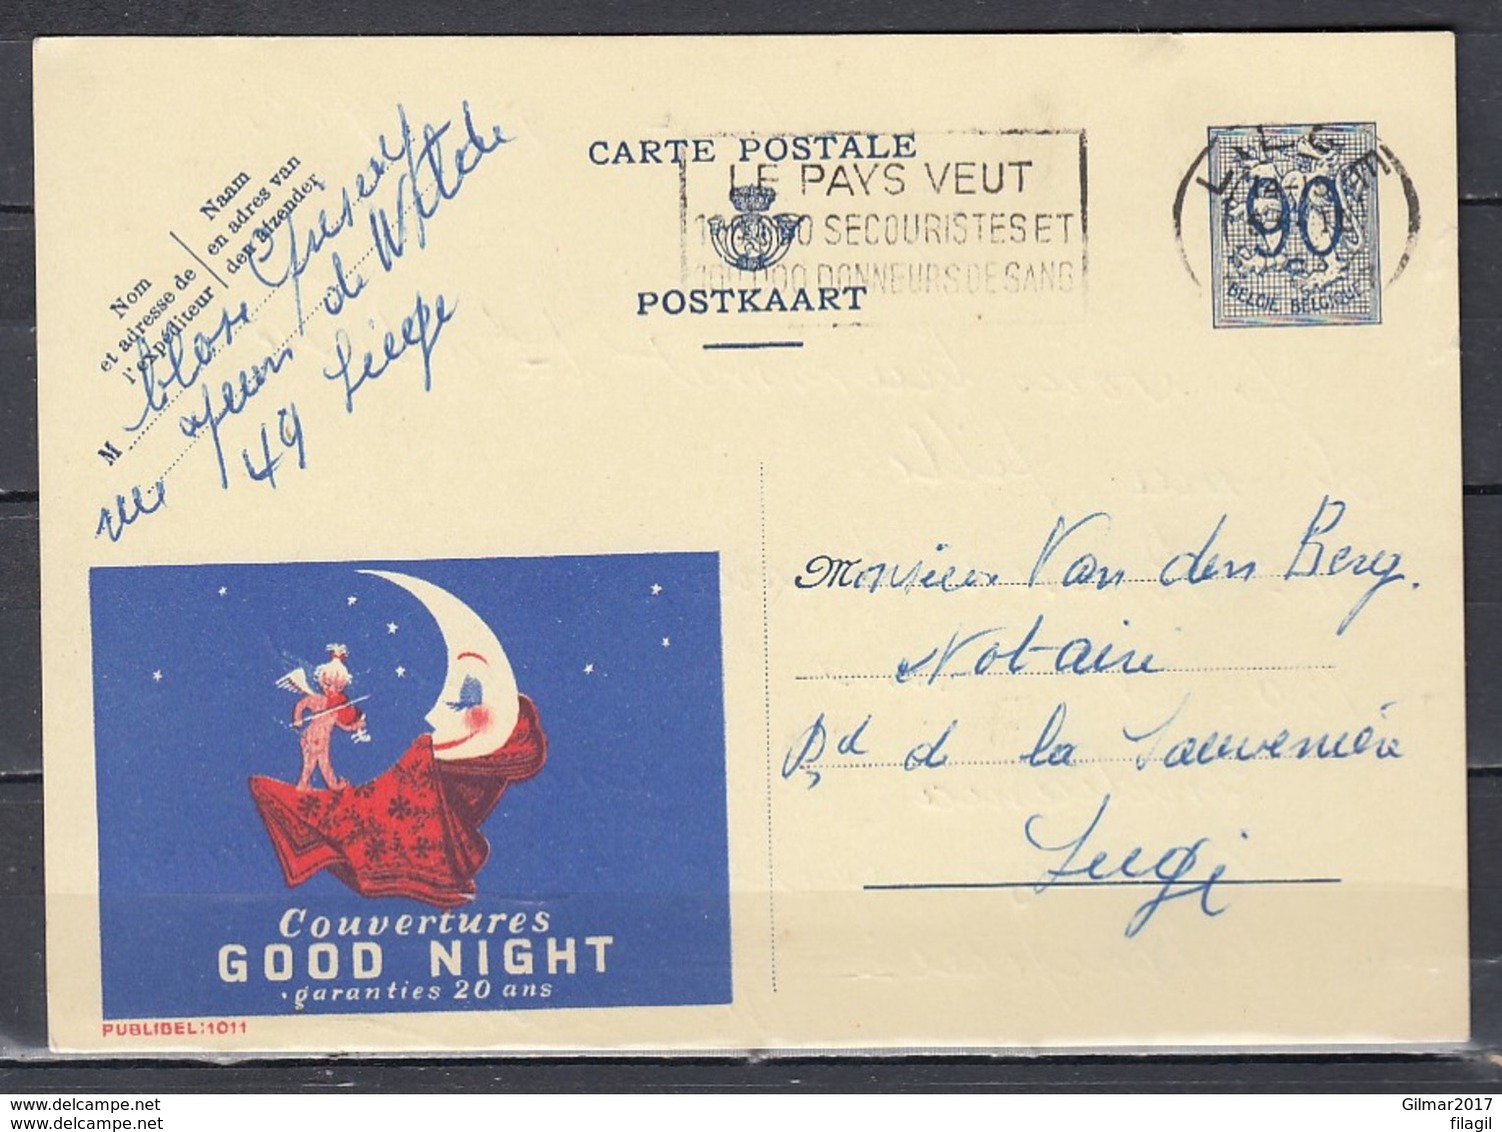 Nom
et adresse de
l'expéditeur
Naam
en adres van
den afzender
M
de Witte
49 Liège
CARTE POSTALE
POSTKAART
LE PAYS VEUT
SECOURISTES ET
100.000 DONNEURS DE SANG
90
BELGIE BELGIQUE
Monsieur Van den Berg.
Notaire
Bd de la Sauvenière
Liège
Couvertures
GOOD NIGHT
garanties 20 ans
PUBLIBEL:1011
www.delcampe.net
www.delcampe.net
Gilmar2017
filagil